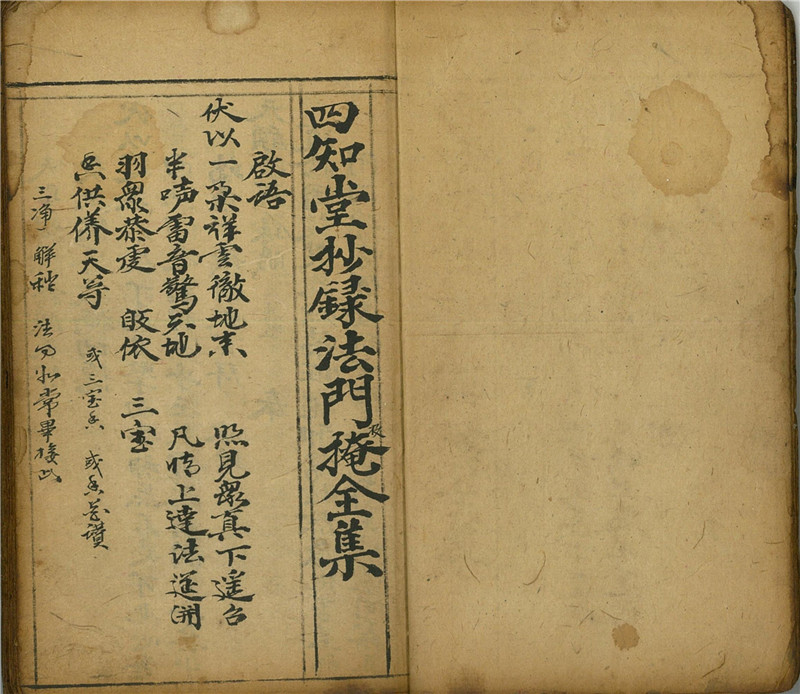 四知堂抄録法門掩全集
啟語
伏以一朶祥雲徹地来 照見衆真下遥台
半声雷音驚天地 凡情上達法筵開
羽衆恭虔 皈依 三宝
香供養天尊 或三宝香 或香花讚
三净 解穢 法事如常畢接此